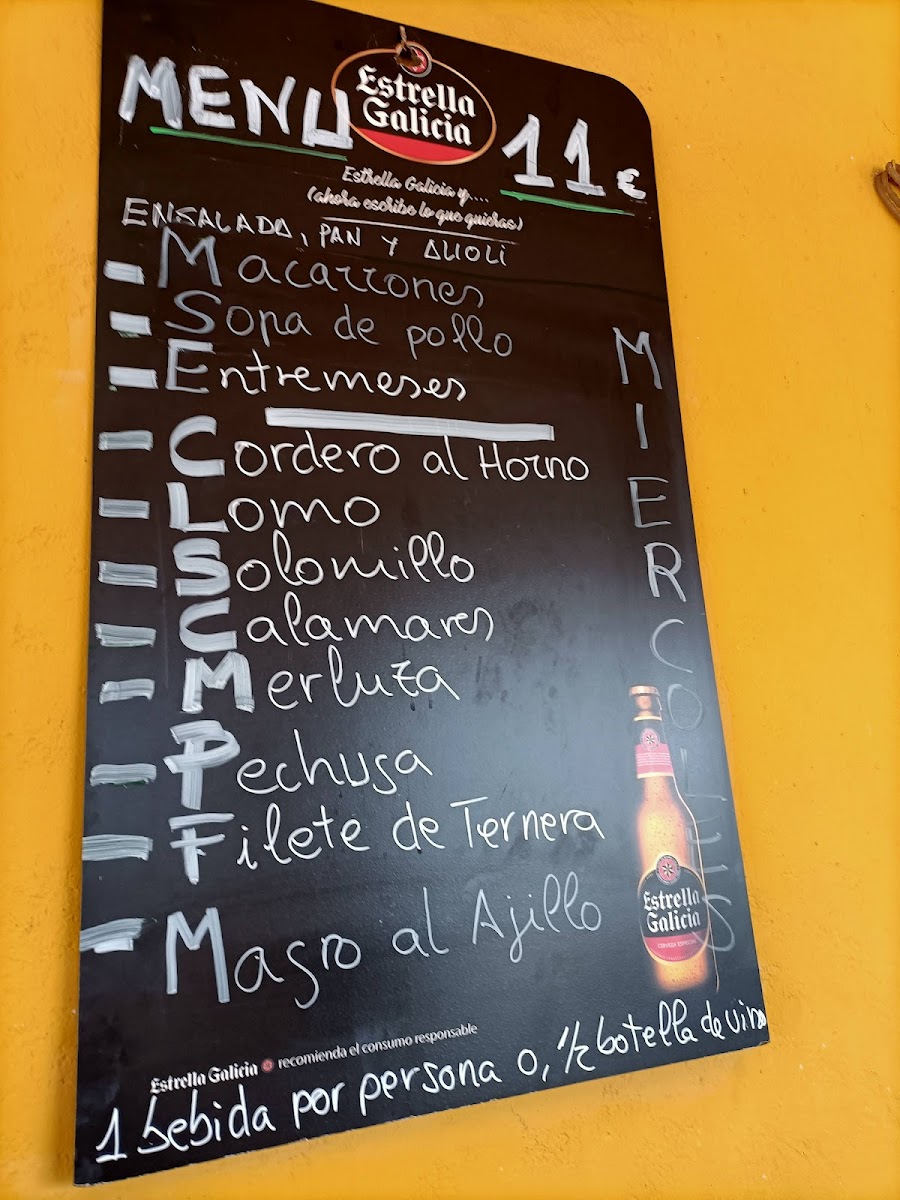 MENU
Estrella
Galicia
11 €
Estrella Galicia y....
(ahora escribe lo que quieras)
ENSALADA, PAN Y ALIOLI
- Macarrones
- Sopa de pollo
- Entremeses
- Cordero al Horno
- Lomo
- Solomillo
- Calamares
- Merluza
- Pechuga
- Filete de Ternera
- Magro al Ajillo
MIERCOLES
Estrella
Galicia
CERVEZA ESPECIAL
Estrella Galicia recomienda el consumo responsable
1 bebida por persona o, 1/2 botella de vino